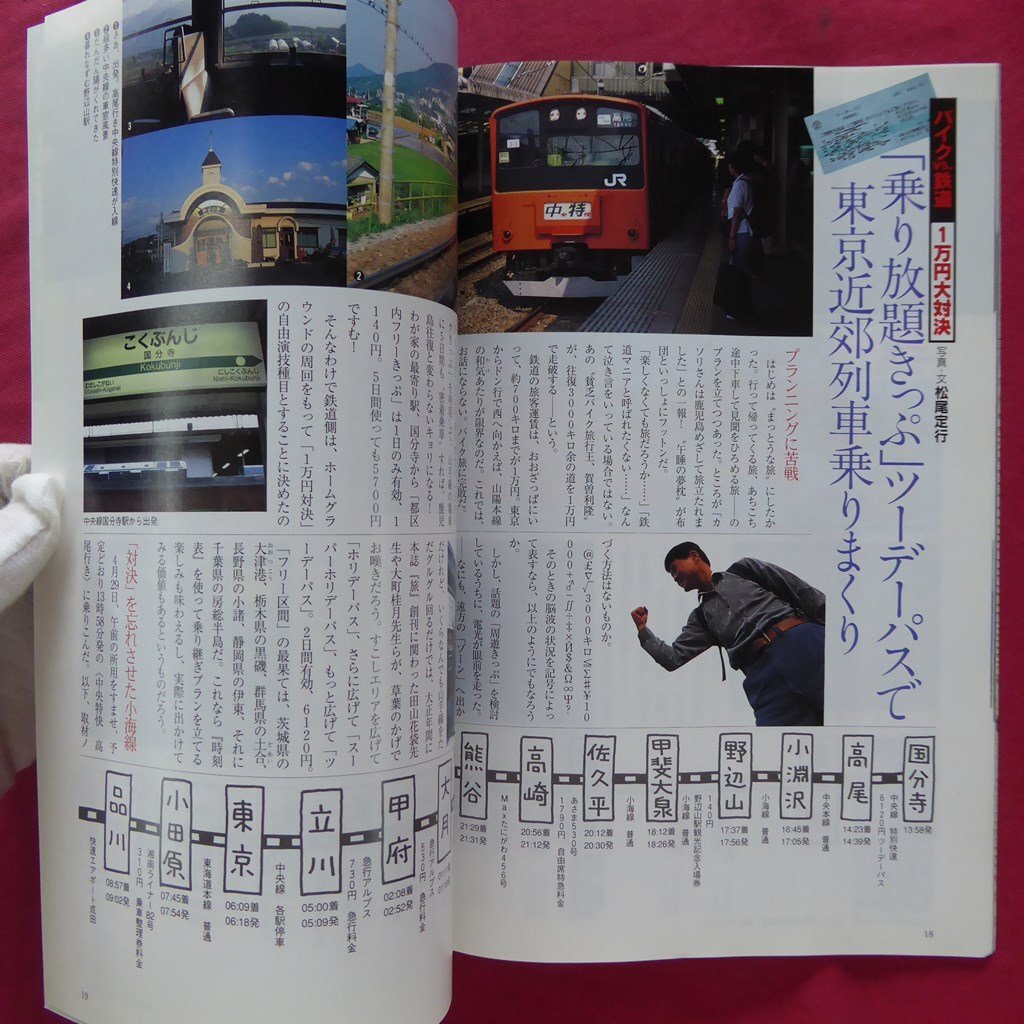 バイクvs鉄道
1万円大対決
「乗り放題きっぷ」ツーデーパスで
東京近郊列車乗りまくり
写真・文 松尾定行
高尾
TAKAO
JR
中央特快
プランニングに苦戦
はじめは〝まっとうな旅〟にしたか
った。行って帰ってくる旅、あちこち
途中下車して見聞をひろめる旅――の
プランを立てつつあった。ところが「カ
ソリさんは鹿児島めざして旅立たれま
した」との一報!〝午睡の夢枕〟が布
団といっしょにフットンだ。
「楽しくなくても旅だろうか……」「鉄
道マニアと呼ばれたくない……」なん
て泣き言をいっている場合ではない。
あの〝貧乏バイク旅行王、賀曽利隆〟
が、往復3000キロ余の道を1万円
で走破する――という。
鉄道の旅客運賃は、おおざっぱにい
って、約700キロまでが1万円。東京
からドン行で西へ向かえば、山陽本線
の和気あたりが限界なのだ。これでは、
お話にならない。バイク旅に完敗だ。
づく方法はないものか。
@£∠▽√3000キロ≦Σ♯¥10
000+♂∬∫÷±×И$&Ω∞Ψ?
そのときの脳波の状況を記号によっ
て表すなら、以上のようにでもなろう
か。
しかし、話題の「周遊きっぷ」を検討
しているうちに、電光が眼前を走った。
なにも、遠方の「ゾーン」へ出か
国分寺
13:58発
中央線 特別快速
6120円ツーデーパス
高尾
14:23着
14:39発
中央本線 普通
小淵沢
16:45着
17:05発
小海線 普通
野辺山
17:37着
17:56発
140円
野辺山駅観光記念入場券
小海線 普通
甲斐大泉
18:12着
18:26発
小海線 普通
佐久平
20:12着
20:30発
あさま530号
1790円 自由席特急料金
高崎
20:56着
21:12発
Maxたにがわ456号
熊谷
21:29着
21:31発
18
❶さあ、出発。高尾行き中央線特別快速が入線
❷緑多い中央線の車窓風景
❸だんだん陽がくれてきた
❹暮れなずむ野辺山駅
3
2
4
こくぶんじ
国分寺
Kokubunji
むさしこがねい
Musashi-Koganei
にしこくぶんじ
Nishi-Kokubunji
中央線国分寺駅から出発
島往復と変わらないキョリになる!
わが家の最寄り駅、国分寺から「都区
内フリーきっぷ」は1日のみ有効、1
140円。5日間使っても5700円
ですむ!
そんなわけで鉄道側は、ホームグラ
ウンドの周回をもって「1万円対決」
の自由演技種目とすることに決めたの
だけれど、いくらなんでも山手線をた
だグルグル回るだけでは、大正年間に
本誌『旅』創刊に関わった田山花袋先
生や大町桂月先生らが、草葉のかげで
お嘆きだろう。すこしエリアを広げて
「ホリデーパス」、さらに広げて「スー
パーホリデーパス」、もっと広げて「ツ
ーデーパス」。2日間有効、6120円。
「フリー区間」の最果ては、茨城県の
大津港、栃木県の黒磯、群馬県の土合、
長野県の小諸、静岡県の伊東、それに
千葉県の房総半島だ。これなら『時刻
表』を使って乗り継ぎプランを立てる
楽しみも味わえるし、実際に出かけて
みる価値もあるというものだろう。
「対決」を忘れさせた小海線
4月29日、午前の所用をすませ、予
定どおり13時58分発の〈中央特快、高
尾行き〉に乗りこんだ。以下、取材ノ
大月
急行アルプス
530円 急行料金
甲府
02:08着
02:52発
急行アルプス
730円 急行料金
立川
05:00着
05:09発
中央線 各駅停車
東京
06:09着
06:18発
東海道本線 普通
小田原
07:45着
07:54発
湘南ライナー82号
310円 乗車整理券料金
品川
08:57着
09:02発
快速エアポート成田
19